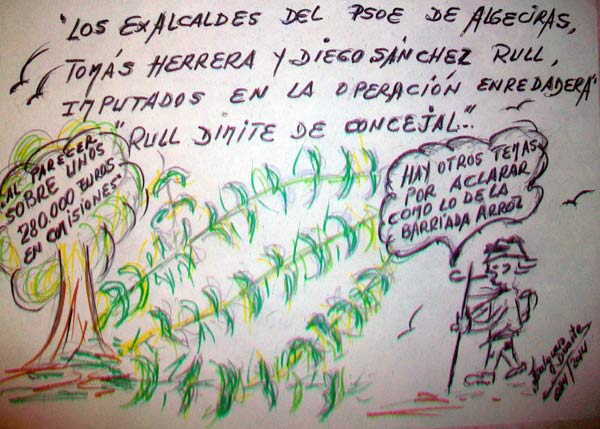 "LOS EXALCALDES DEL PSOE DE ALGECIRAS,
TOMÁS HERRERA Y DIEGO SÁNCHEZ RULL,
IMPUTADOS EN LA OPERACIÓN ENREDADERA"
"RULL DIMITE DE CONCEJAL..."
"AL PARECER
SOBRE UNOS
280.000 EUROS
EN COMISIONES"
HAY OTROS TEMAS
POR ACLARAR
COMO LO DE LA
BARRIADA ARROZ